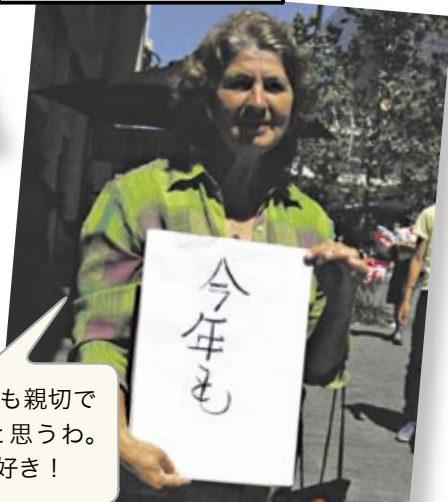 今年も
も親切で
と思うわ。
好き！